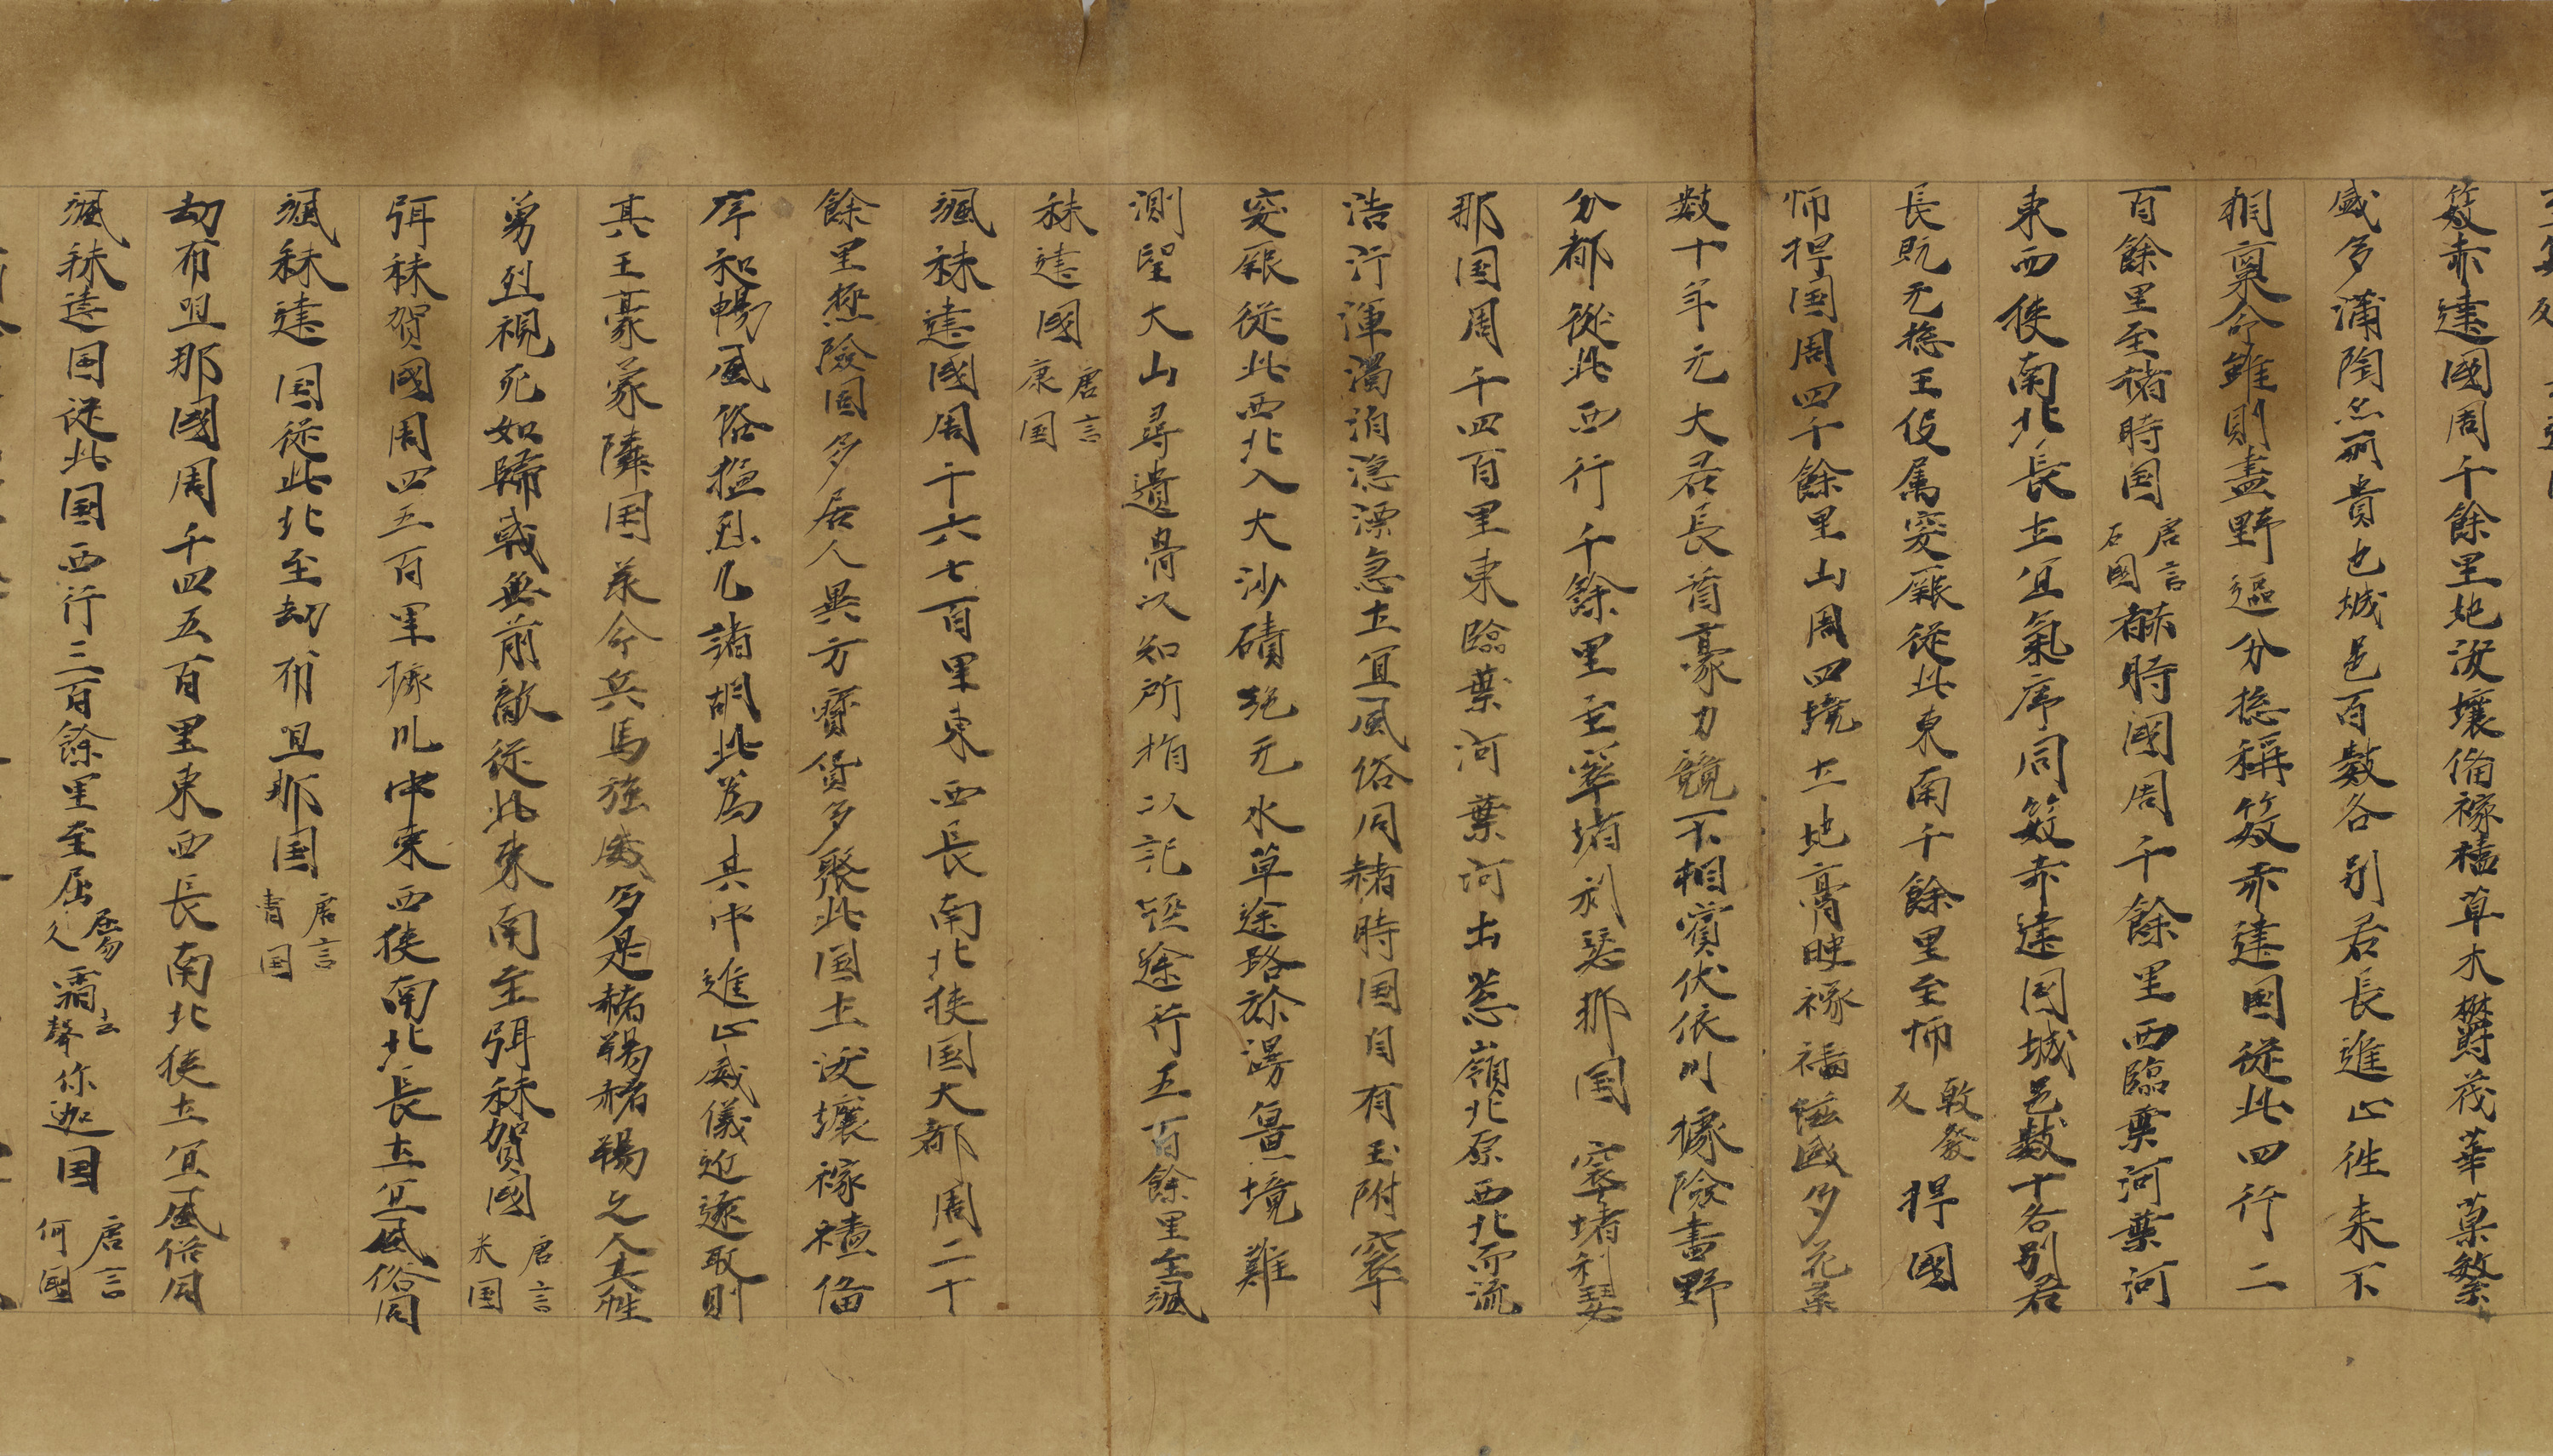 笯赤建國周千餘里地沃壤俻稼穡草木欝茂華菓繁
盛多蒲陶亦所貴也城邑百數各别君長進止徃来不
相稟命雖則畫野區分揔稱笯赤建国從此西行二
百餘里至赭時国唐言石國赭時國周千餘里西臨葉河葉河
東西狹南北長土宜氣序同笯赤建国城邑數十各别君
長既无揔王伇属突厥從此東南千餘里至㤄敷發反捍國
㤄捍国周四千餘里山周四境土地膏腴稼穡滋盛多花菓
數十年无大君長酋豪力競不相賓伏依川據險畫野
分都從此西行千餘里至窣堵利瑟那国窣堵利瑟
那国周千四百里東臨葉河葉河出葱嶺北原西北而流
浩汗渾濁汩淴漂急土宜風俗同赭時国自有王附窣
突厥從此西北入大沙磧絶无水草途路弥漫畺境難
測望大山尋遺骨以知所指以記経途行五百餘里至颯
秣建國唐言康国
颯秣建國周千六七百里東西長南北狹国大都周二十
餘里極險固多居人異方寳貨多聚此国土沃壤稼穡俻
序和暢風俗猛烈凡諸胡此為其中進止威儀近遠取則
其王豪豪隣国美命兵馬強盛多是赭羯赭羯之人其性
勇烈視死如歸戦無前敵從此東南至弭秣賀國唐言米国
弭秣賀國周四五百里據川中東西狹南北長土宜風俗同
颯秣建国從此北至劫布呾那国唐言曹国
劫布呾那國周千四五百里東西長南北狹土宜風俗同
颯秣建国從此国西行三百餘里至屈居勿反霜去聲你迦国唐言何國